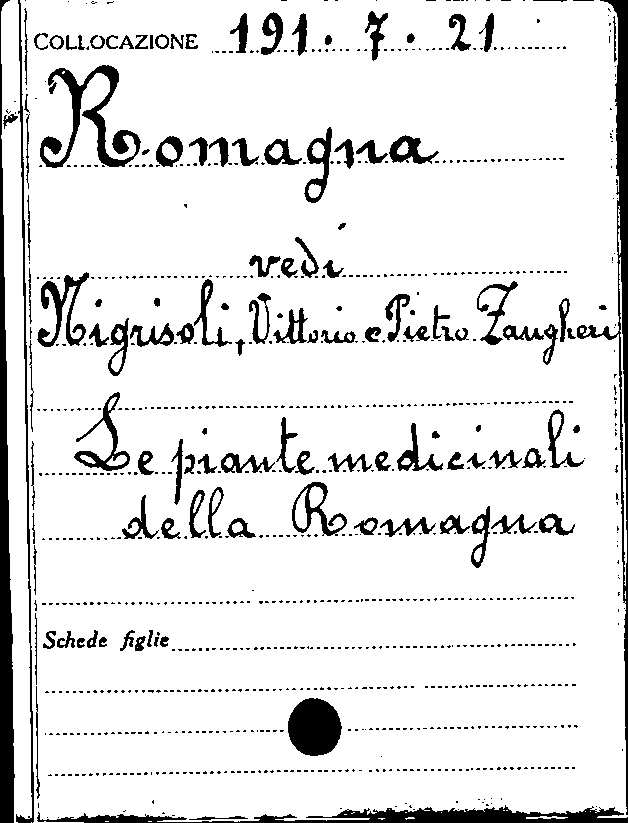 COLLOCAZIONE 191.7.21
Romagna
vedi
Nigrisoli, Vittorio e Pietro Zangheri
Le piante medicinali
della Romagna
Schede figlie